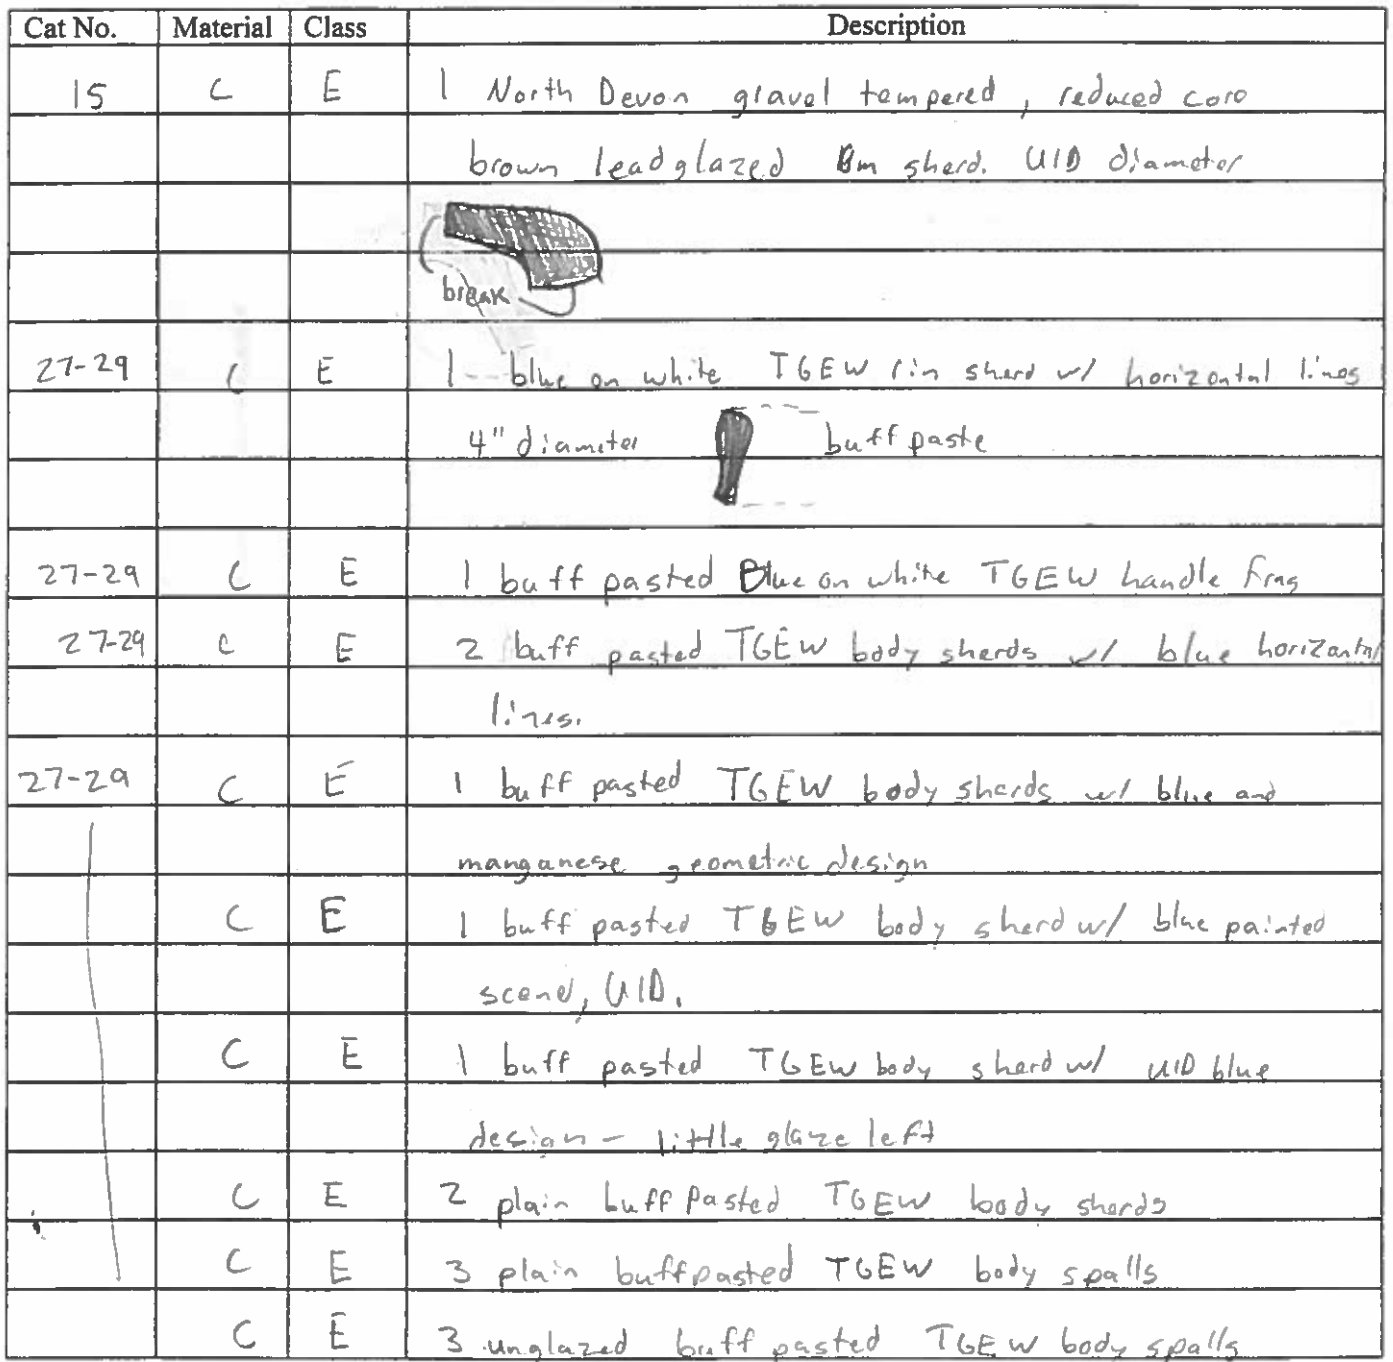 Cat No. Material Class Description
15 C E 1 North Devon gravel tempered, reduced core
brown leadglazed sherd. UID diameter
break
27-29 C E 1 blue on white TGEW rim sherd w/ horizontal lines
4" diameter buff paste
27-29 C E 1 buff pasted Blue on white TGEW handle frag
27-29 C E 2 buff pasted TGEW body sherds w/ blue horizontal
lines.
27-29 C E 1 buff pasted TGEW body sherds w/ blue and
manganese geometric design
C E 1 buff pasted TGEW body sherd w/ blue painted
scene, UID.
C E 1 buff pasted TGEW body sherd w/ UID blue
design - little glaze left
C E 2 plain buff pasted TGEW body sherds
C E 3 plain buff pasted TGEW body spalls
C E 3 unglazed buff pasted TGEW body spalls